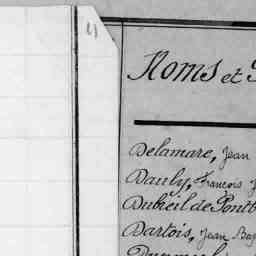 Noms et
Delamare, Jean
Dauly, François
Dubreil de Pontb
Dartois, Jean Bap